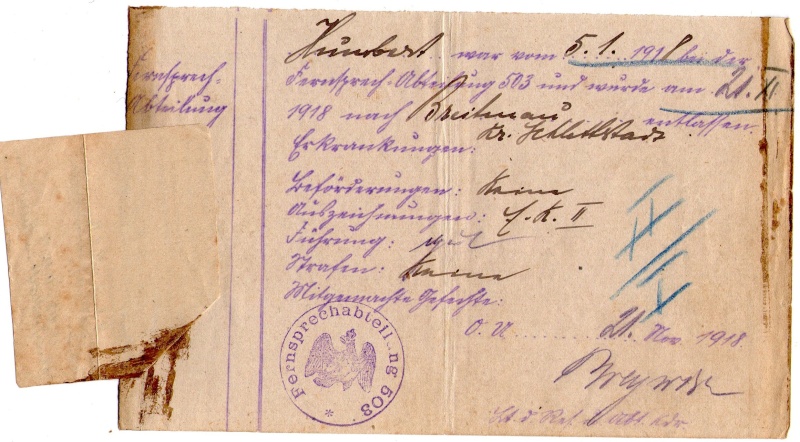 Fernsprech-
Abteilung
Humbert war vom 5.1. 1918 bei der
Fernsprech-Abteilung 503 und wurde am 21. XI
1918 nach Breitenau
Kr. Schlettstadt entlassen.
Erkrankungen:
Beförderungen: Keine
Auszeichnungen: E.K. II
Führung: gut
Strafen: Keine
Mitgemachte Gefechte:
O.U. 21. Nov. 1918.
Lt. d. Res. u. Abt. Kdr.
Fernsprechabteil.ng 503